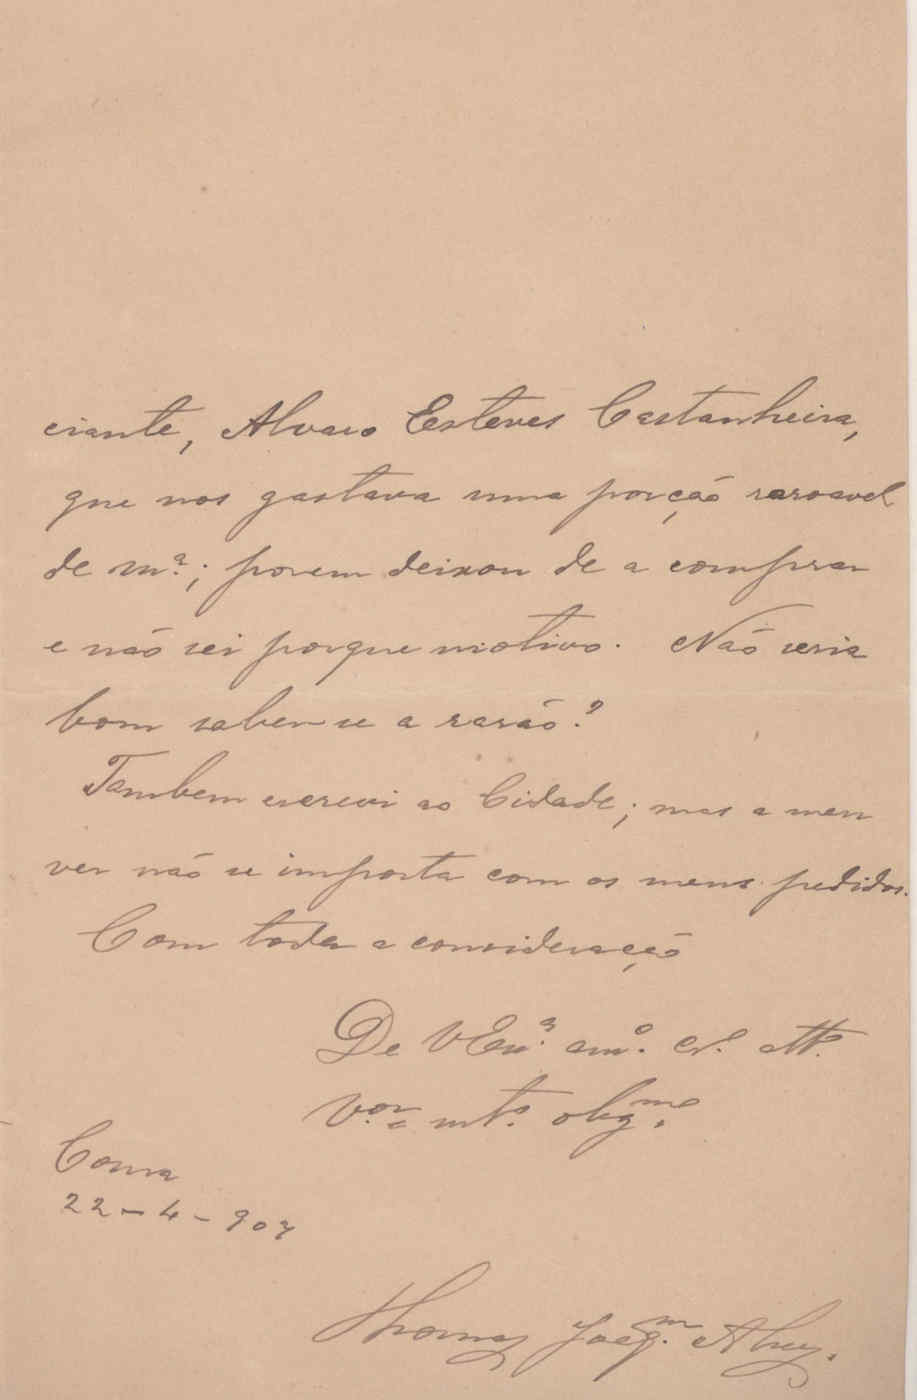 ciante, Alvaro Esteves Castanheira,
que nos gastava uma porção rasoavel
de mª.; porem deixou de a comprar
e não sei porque motivo. Não seria
bom saber-se a rasão?
Tambem escrevi ao Cidade; mas a meu
ver não se importa com os meus pedidos.
Com toda a consideração
De VExª. amº. cr. attº.
Vor. e mtº. obigmo.
Coura
22-4-907
Thomaz Joaqm. Alvz.